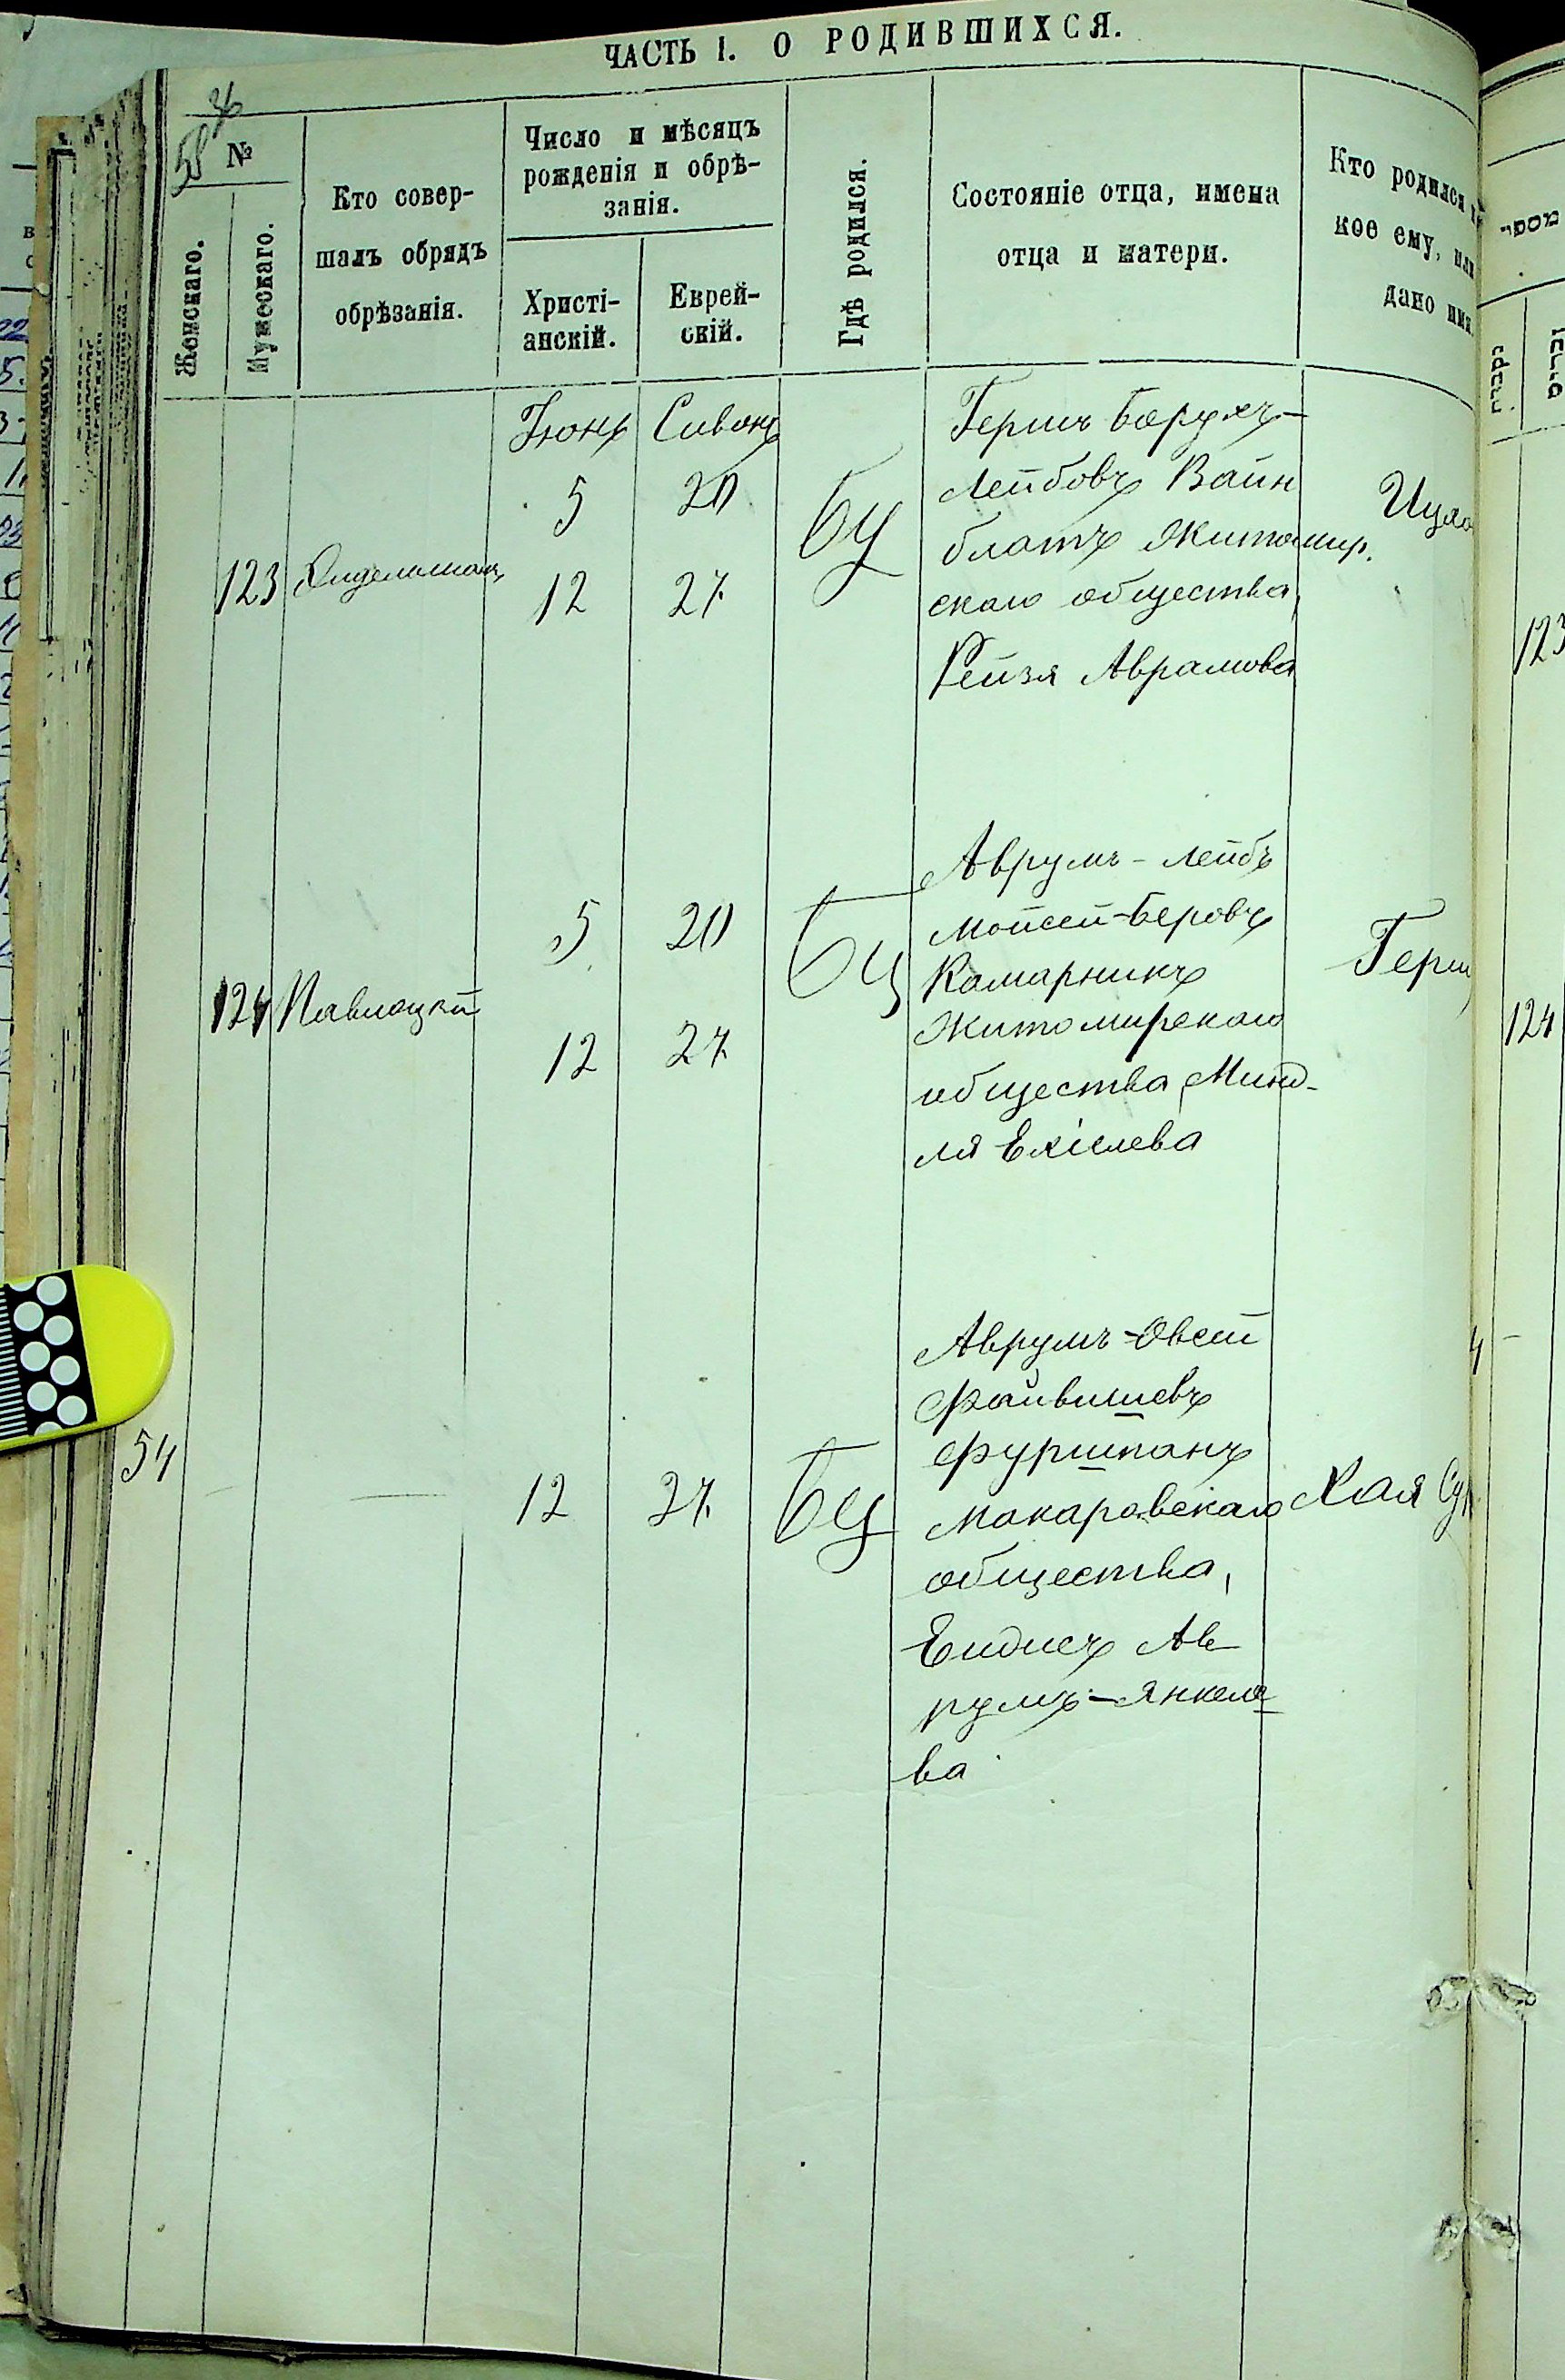 ЧАСТЬ I. О РОДИВШИХСЯ.
36
58
№
Женскаго.
Мужескаго.
Кто совер-
шалъ обрядъ
обрѣзанія.
Число и мѣсяцъ
рожденія и обрѣ-
занія.
Христі-
анскій.
Еврей-
скій.
Гдѣ родился.
Состояніе отца, имена
отца и матери.
Кто родился
кое ему, или
дано имя.
Іюнь Сивонъ
5 20
12 27
123
БЦ
Гершъ Борухъ-
Лейбовъ Вайн
блатъ Житомир.
скаго общества,
Рейзя Аврамова
Ицхо
5 20
12 27
124 Паволоцкій
БЦ
Аврумъ-Лейбъ
Мойсей-Беровъ
Комарникъ
Житомирскаго
общества, Минд-
ля Ехіелева
Герш
54 — — 12 27
БЦ
Аврумъ-Овсей
Файвишевъ
Фурманъ
Макаровскаго
общества,
Ендисъ Ав
румъ-Янкеле
ва
Хая Су
מספר
נקבות
זכרים
123
124
4 —